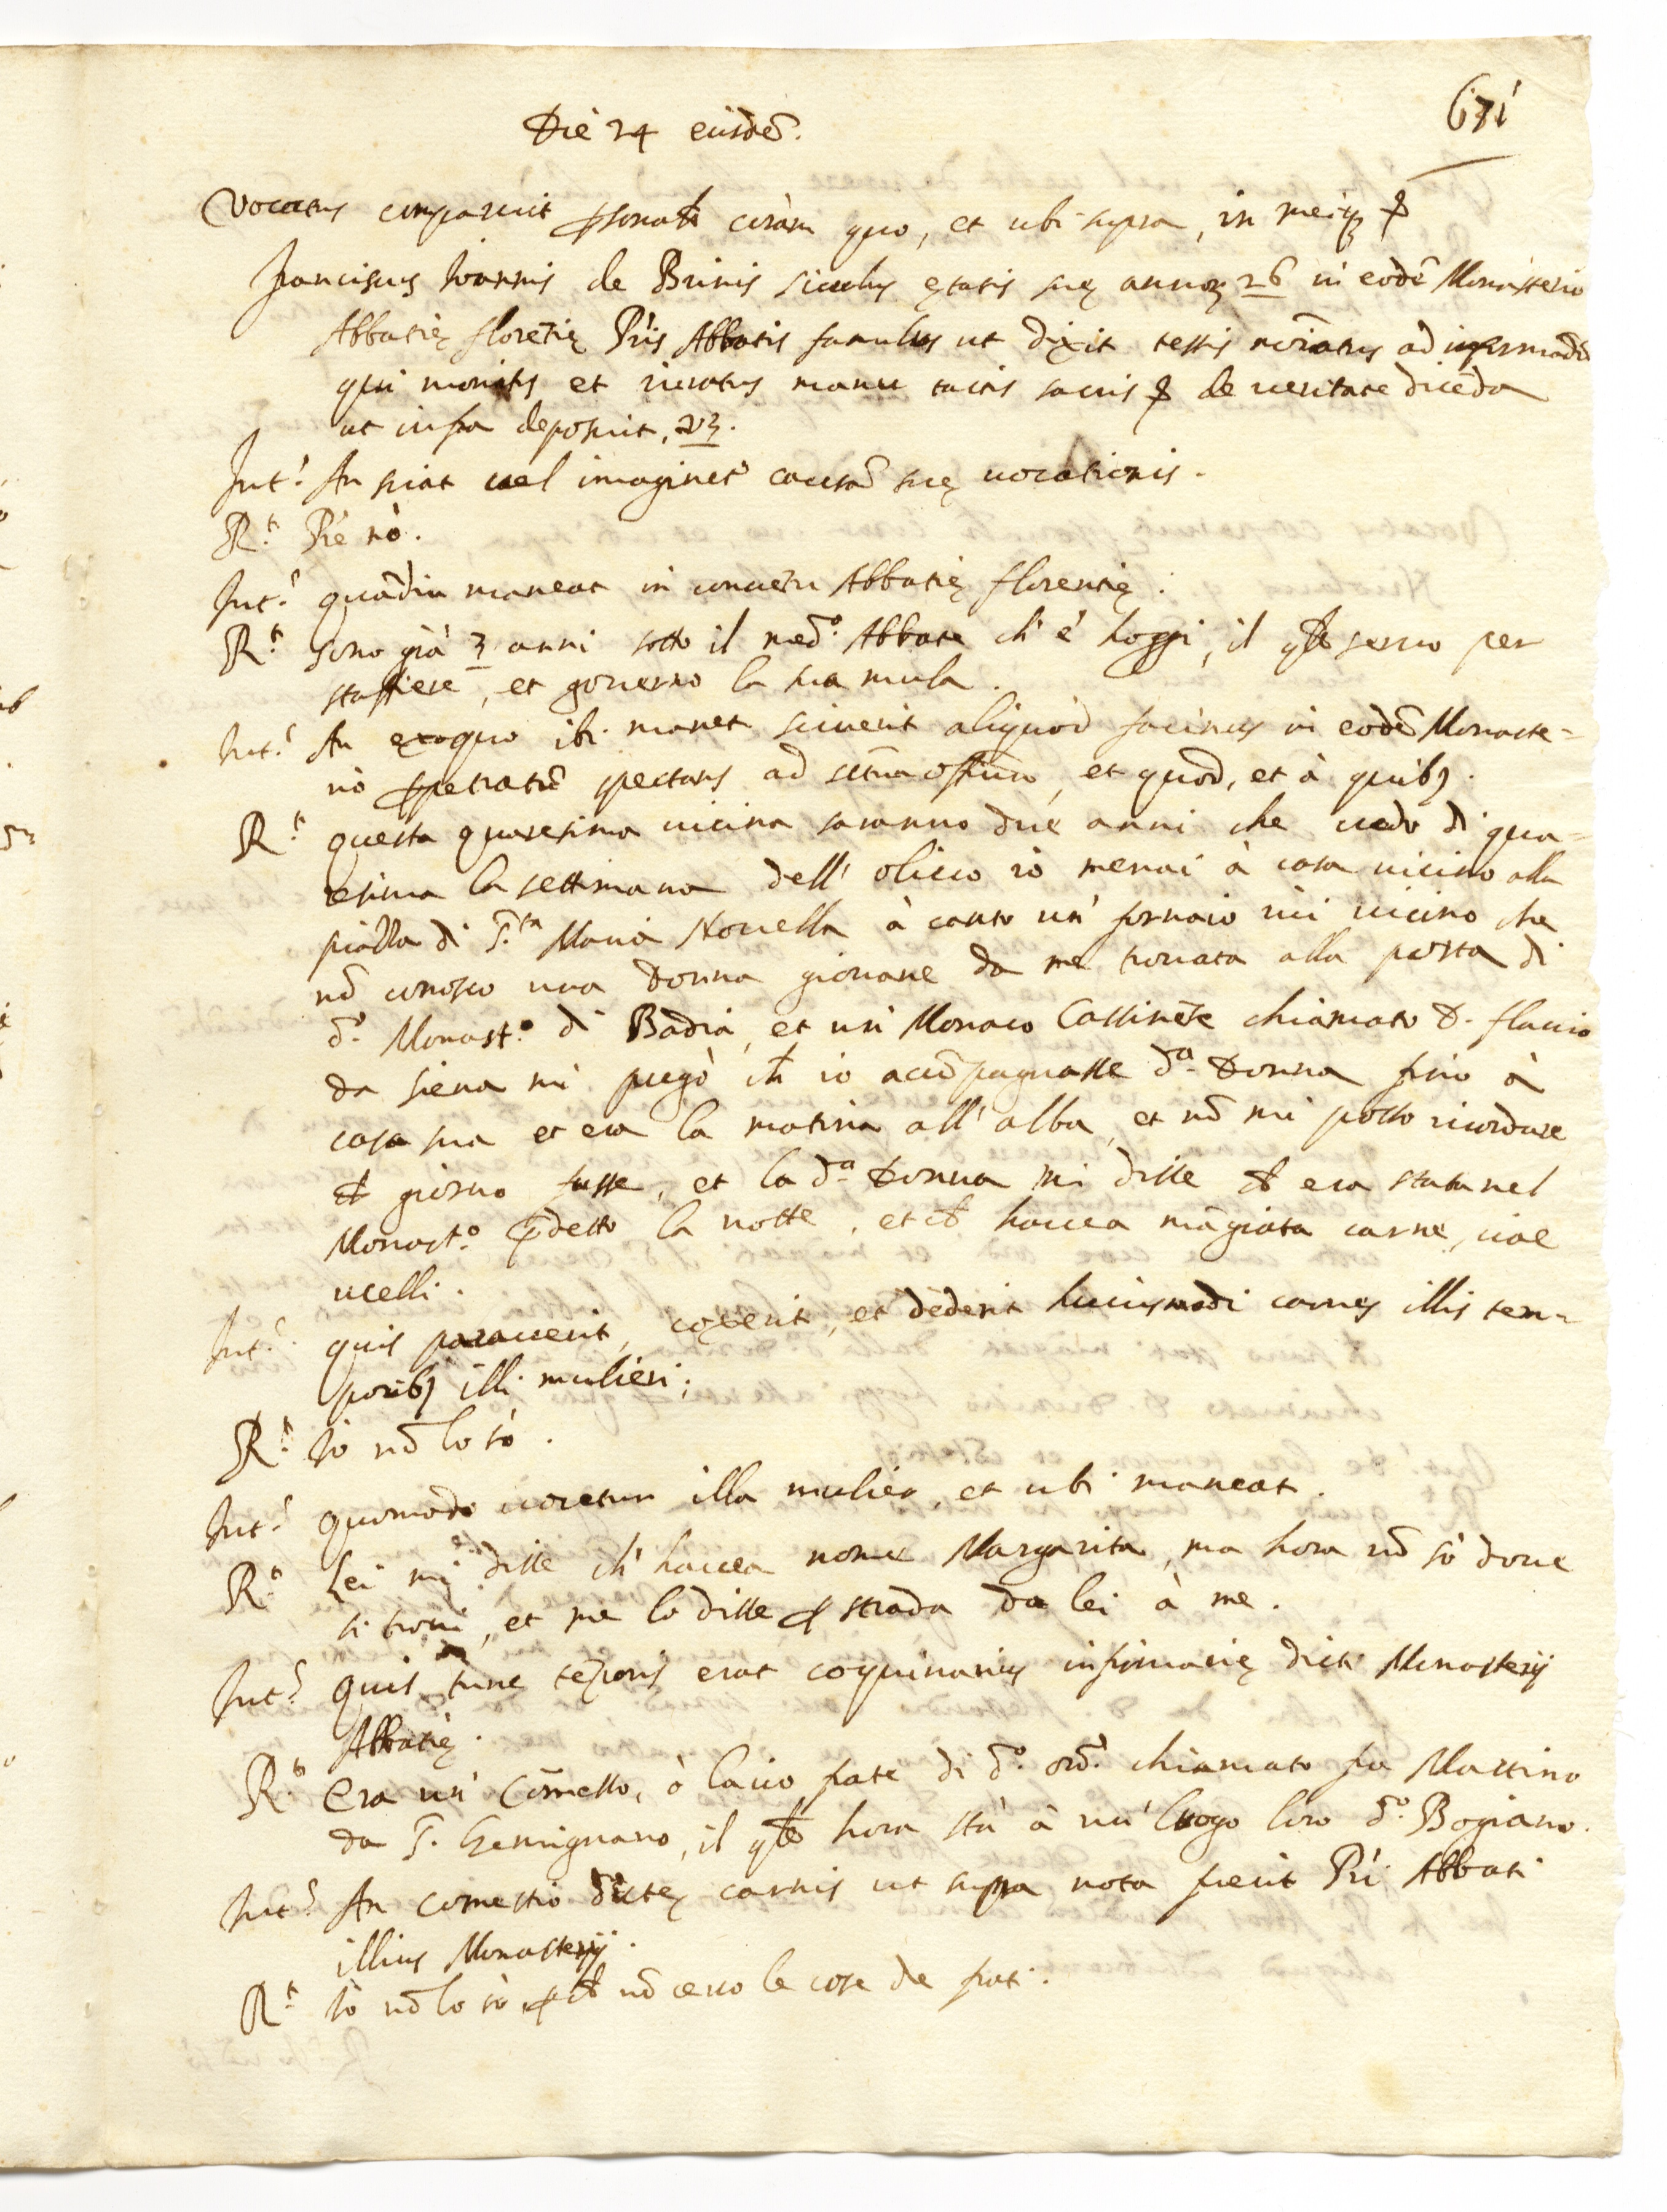 671
Die 24 eiusdē.
Vocatus comparuit psonalr coràm quo, et ubi supra, in meiqz p
Franciscus Ioannis de Brinis siculus ętatis suę annoꝝ 26 in eodē Monasterio
Abbatię floretię Pris Abbatis famulus ut dixit testis noiatus ad informadū
qui monitus et iuratus manu tactis sacris p de ueritate diceda
ut infra deposuit, vz.
Int.s An sciat uel imaginet causā suę uocationis.
R.t Pre nò.
Int.s quādiu maneat in conuetu Abbatię florentię.
R.t Sono già 3 anni sotto il med.o Abbate ch' è hoggi, il qle seruo per
staffiere, et gouerno la sua mula.
Int.s An exoquo ibi manet sciuerit aliquod facinus in eodē Monaste=
rio ppetratū spectans ad sctum offium, et quod, et à quibz.
R.t questa quaresima uicina saranno due anni che credo di qua=
resima la settimana dell' oliuo io menai à casa uicino alla
piazza di S.ta Maria Nouella à canto un' fornaio iui uicino che
nō conosco una donna giouane da me trouata alla porta di
d.o Monast.o di Badia, et un' Monaco Cassinēse chiamato D. flauio
da Siena mi pregò ch' io acōpagnasse d.a Donna fino à
casa sua et era la matina all' alba, et nō mi posso ricordare
ch giorno fusse, et la d.a Donna mi disse ch era stata nel
Monast.o pdetto la notte, et ch hauea māgiata carne, cioè
ucelli.
Int.s quis parauerit, coxerit, et dederit huiusmodi carnes illis tem=
poribz illi mulieri;
R.t Io nō lo sò.
Int.s quomodo uocetur illa mulier, et ubi maneat.
R.t Lei mi disse ch' hauea nome Margarita, ma hora nō sò doue
si troui, et me lo disse p strada da lei à me.
Int.s quis tunc teporis erat coquinarius infirmarię dicti Monasterij
Abbatię.
R.t Era un' Cōmesso, ò laico frate di d.o ord.e chiamato fra Martino
da S. Gemignano, il qle hora stà à un' luogo loro d.o Bogiano.
Int.s An comestio dictę carnis ut supra nota fuerit Pri Abbati
illius Monasterij.
R.t Io nō lo sò, p ch nō cerco le cose de frati.